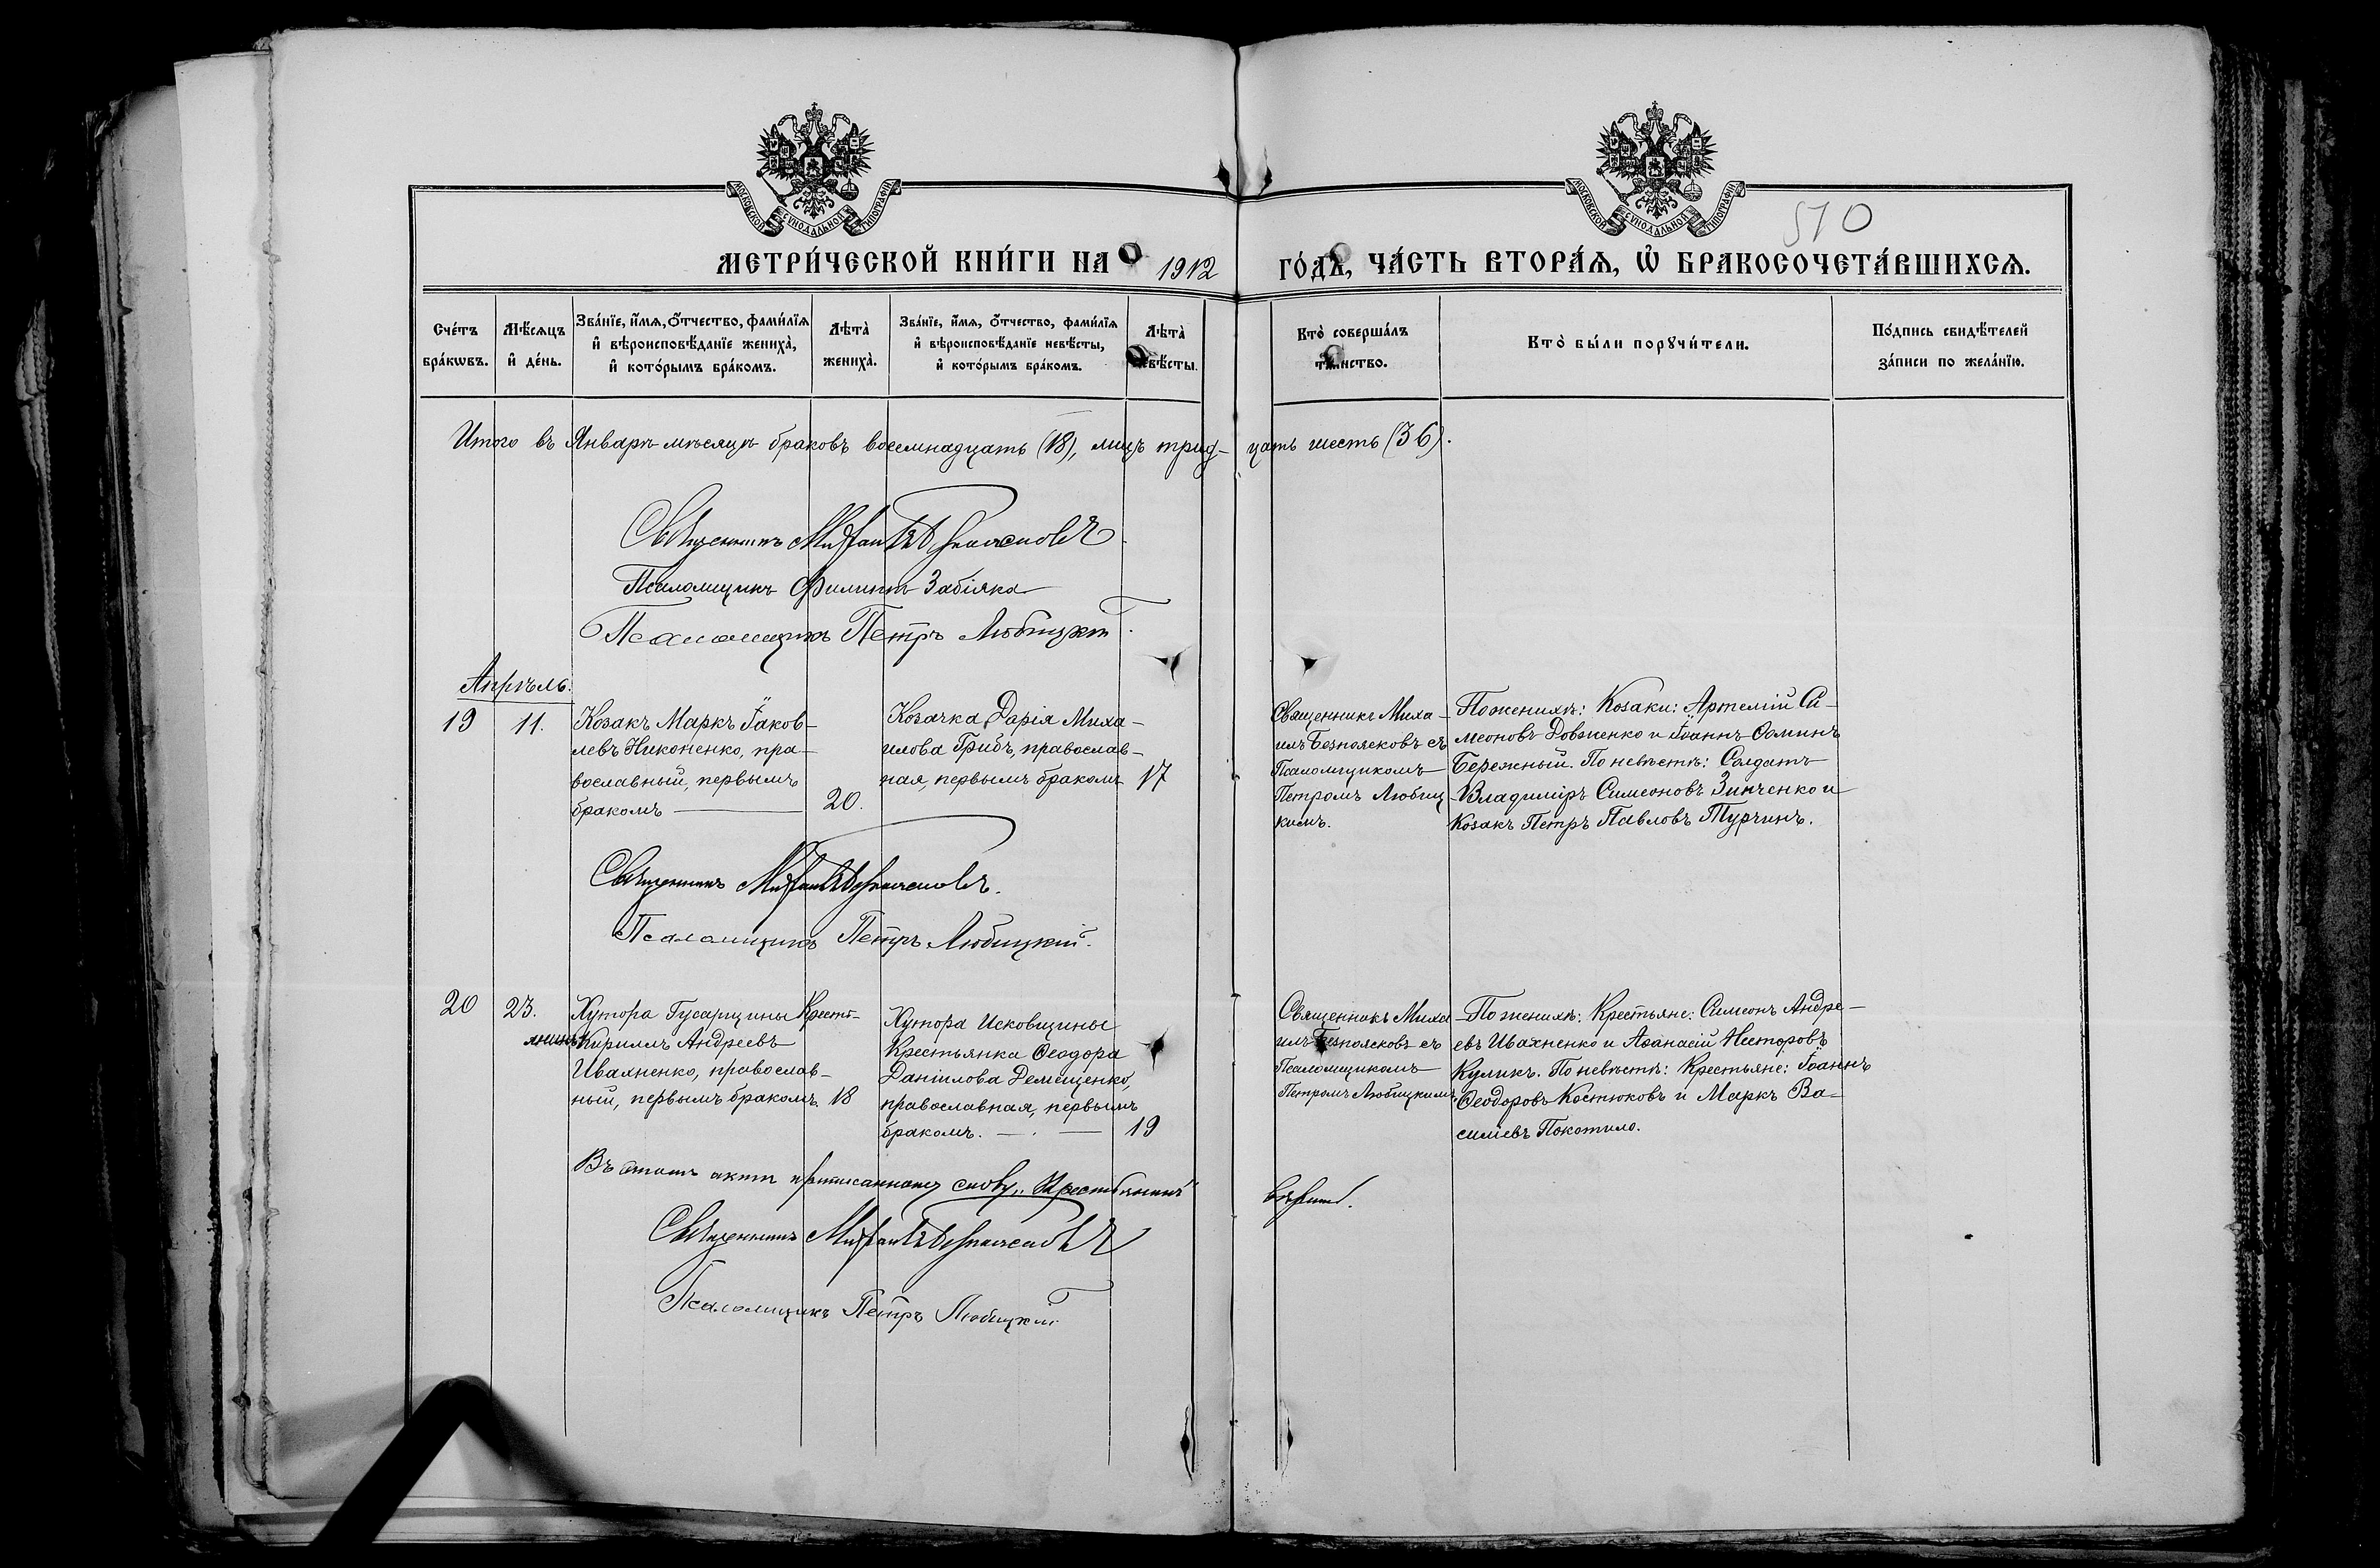 МОСКОВСКОЙ СѴНОДАЛЬНОЙ ТИПОГРАФІИ
МОСКОВСКОЙ СѴНОДАЛЬНОЙ ТИПОГРАФІИ
510
МЕТРИ́ЧЕСКОЙ КНИ́ГИ НА 1912 ГО́ДЪ, ЧА́СТЬ ВТОРА́Ѧ, Ѡ҆ БРАКОСОЧЕТА́ВШИХСѦ.
Сче́тъ
бра́кѡвъ.
Мѣ́сѧцъ
и҆ де́нь.
Зва́нїе, и҆́мѧ, ѻ҆́тчество, фами́лїѧ
и҆ вѣроисповѣ́данїе жениха̀,
и҆ кото́рымъ бра́комъ.
Лѣта̀
жениха̀.
Зва́нїе, и҆́мѧ, ѻ҆́тчество, фами́лїѧ
и҆ вѣроисповѣ́данїе невѣ́сты,
и҆ кото́рымъ бра́комъ.
Лѣта̀
невѣ́сты.
Кто̀ соверша́лъ
та́инство.
Кто̀ бы́ли порꙋчи́тели.
По́дпись свидѣ́телей
за́писи по жела́нїю.
Итого въ Январѣ мѣсяцѣ браковъ восемнадцать (18), лицъ трид-
цать шесть (36).
Священникъ Михаилъ Безпоясковъ
Псаломщикъ Филиппъ Забіяка
Псаломщикъ Петръ Любицкій
Апрѣль.
19
11.
Козакъ Маркъ Іаков-
левъ Никоненко, пра-
вославный, первымъ
бракомъ
20.
Козачка Дарія Миха-
илова Грибъ, православ-
ная, первымъ бракомъ
17
Священникъ Миха-
илъ Безпоясковъ съ
Псаломщикомъ
Петромъ Любиц-
кимъ.
По женихѣ: Козаки: Артемій Си-
меоновъ Довженко и Іоаннъ Ѳоминъ
Бережный. По невѣстѣ: Солдатъ
Владиміръ Симеоновъ Зинченко и
Козакъ Петръ Павловъ Турчинъ.
Священникъ Михаилъ Безпоясковъ.
Псаломщикъ Петръ Любицкій.
20
23.
Хутора Гусарщины Кресть-
янинъ Кириллъ Андреевъ
Ивахненко, православ-
ный, первымъ бракомъ.
18
Хутора Исковщины
Крестьянка Ѳеодора
Даніилова Демещенко,
православная, первымъ
бракомъ.
19
Священникъ Миха-
илъ Безпоясковъ съ
Псаломщикомъ
Петромъ Любицкимъ.
По женихѣ: Крестьяне: Симеонъ Андре-
евъ Ивахненко и Аѳанасій Несторовъ
Куликъ. По невѣстѣ: Крестьяне: Іоаннъ
Ѳеодоровъ Костюковъ и Маркъ Ва-
силіевъ Покотило.
Въ этомъ актѣ приписанному слову „Крестьянинъ"
вѣрить.
Священникъ Михаилъ Безпоясковъ
Псаломщикъ Петръ Любицкій